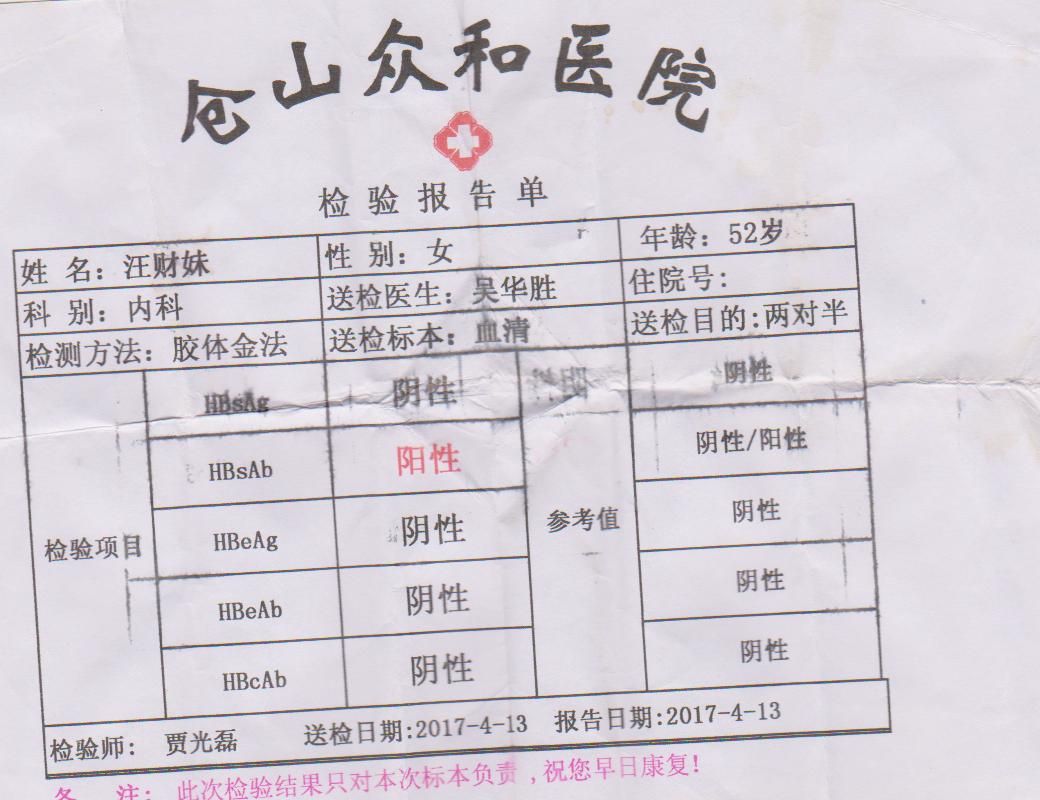 仓山众和医院
检验报告单
姓 名：汪财妹 性 别：女 年龄：52岁
科 别：内科 送检医生：吴华胜 住院号：
检测方法：胶体金法 送检标本：血清 送检目的:两对半
检验项目 参考值
HBsAg 阴性 阴性
HBsAb 阳性 阴性/阳性
HBeAg 阴性 阴性
HBeAb 阴性 阴性
HBcAb 阴性 阴性
检验师： 贾光磊 送检日期:2017-4-13 报告日期:2017-4-13
备 注： 此次检验结果只对本次标本负责，祝您早日康复！